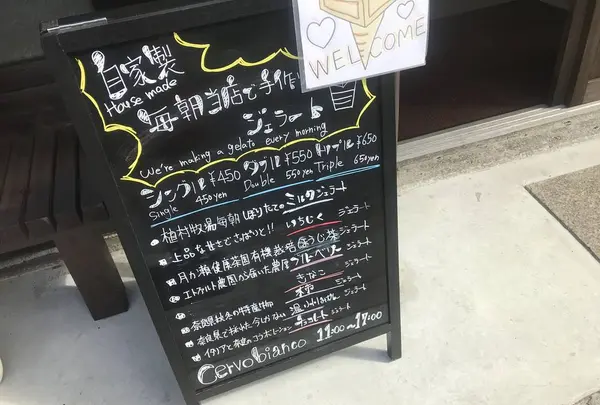 WELCOME
自家製
House made
毎朝当店で手作り
ジェラート
We're making a gelato every morning
シングル ¥450 ダブル ¥550 トリプル ¥650
Single 450yen Double 550yen Triple 650yen
植村牧場毎朝しぼりたての ミルクジェラート
上品な甘さでさっぱりと!! いちじく ジェラート
月ヶ瀬健康茶園有機栽培 ほうじ茶 ジェラート
農園から届いた ブルーベリー ジェラート
きなこ ジェラート
ジェラート
ジェラート
イタリアと奈良のコラボレーション ジェラート
Cervo bianco 11:00~17:00